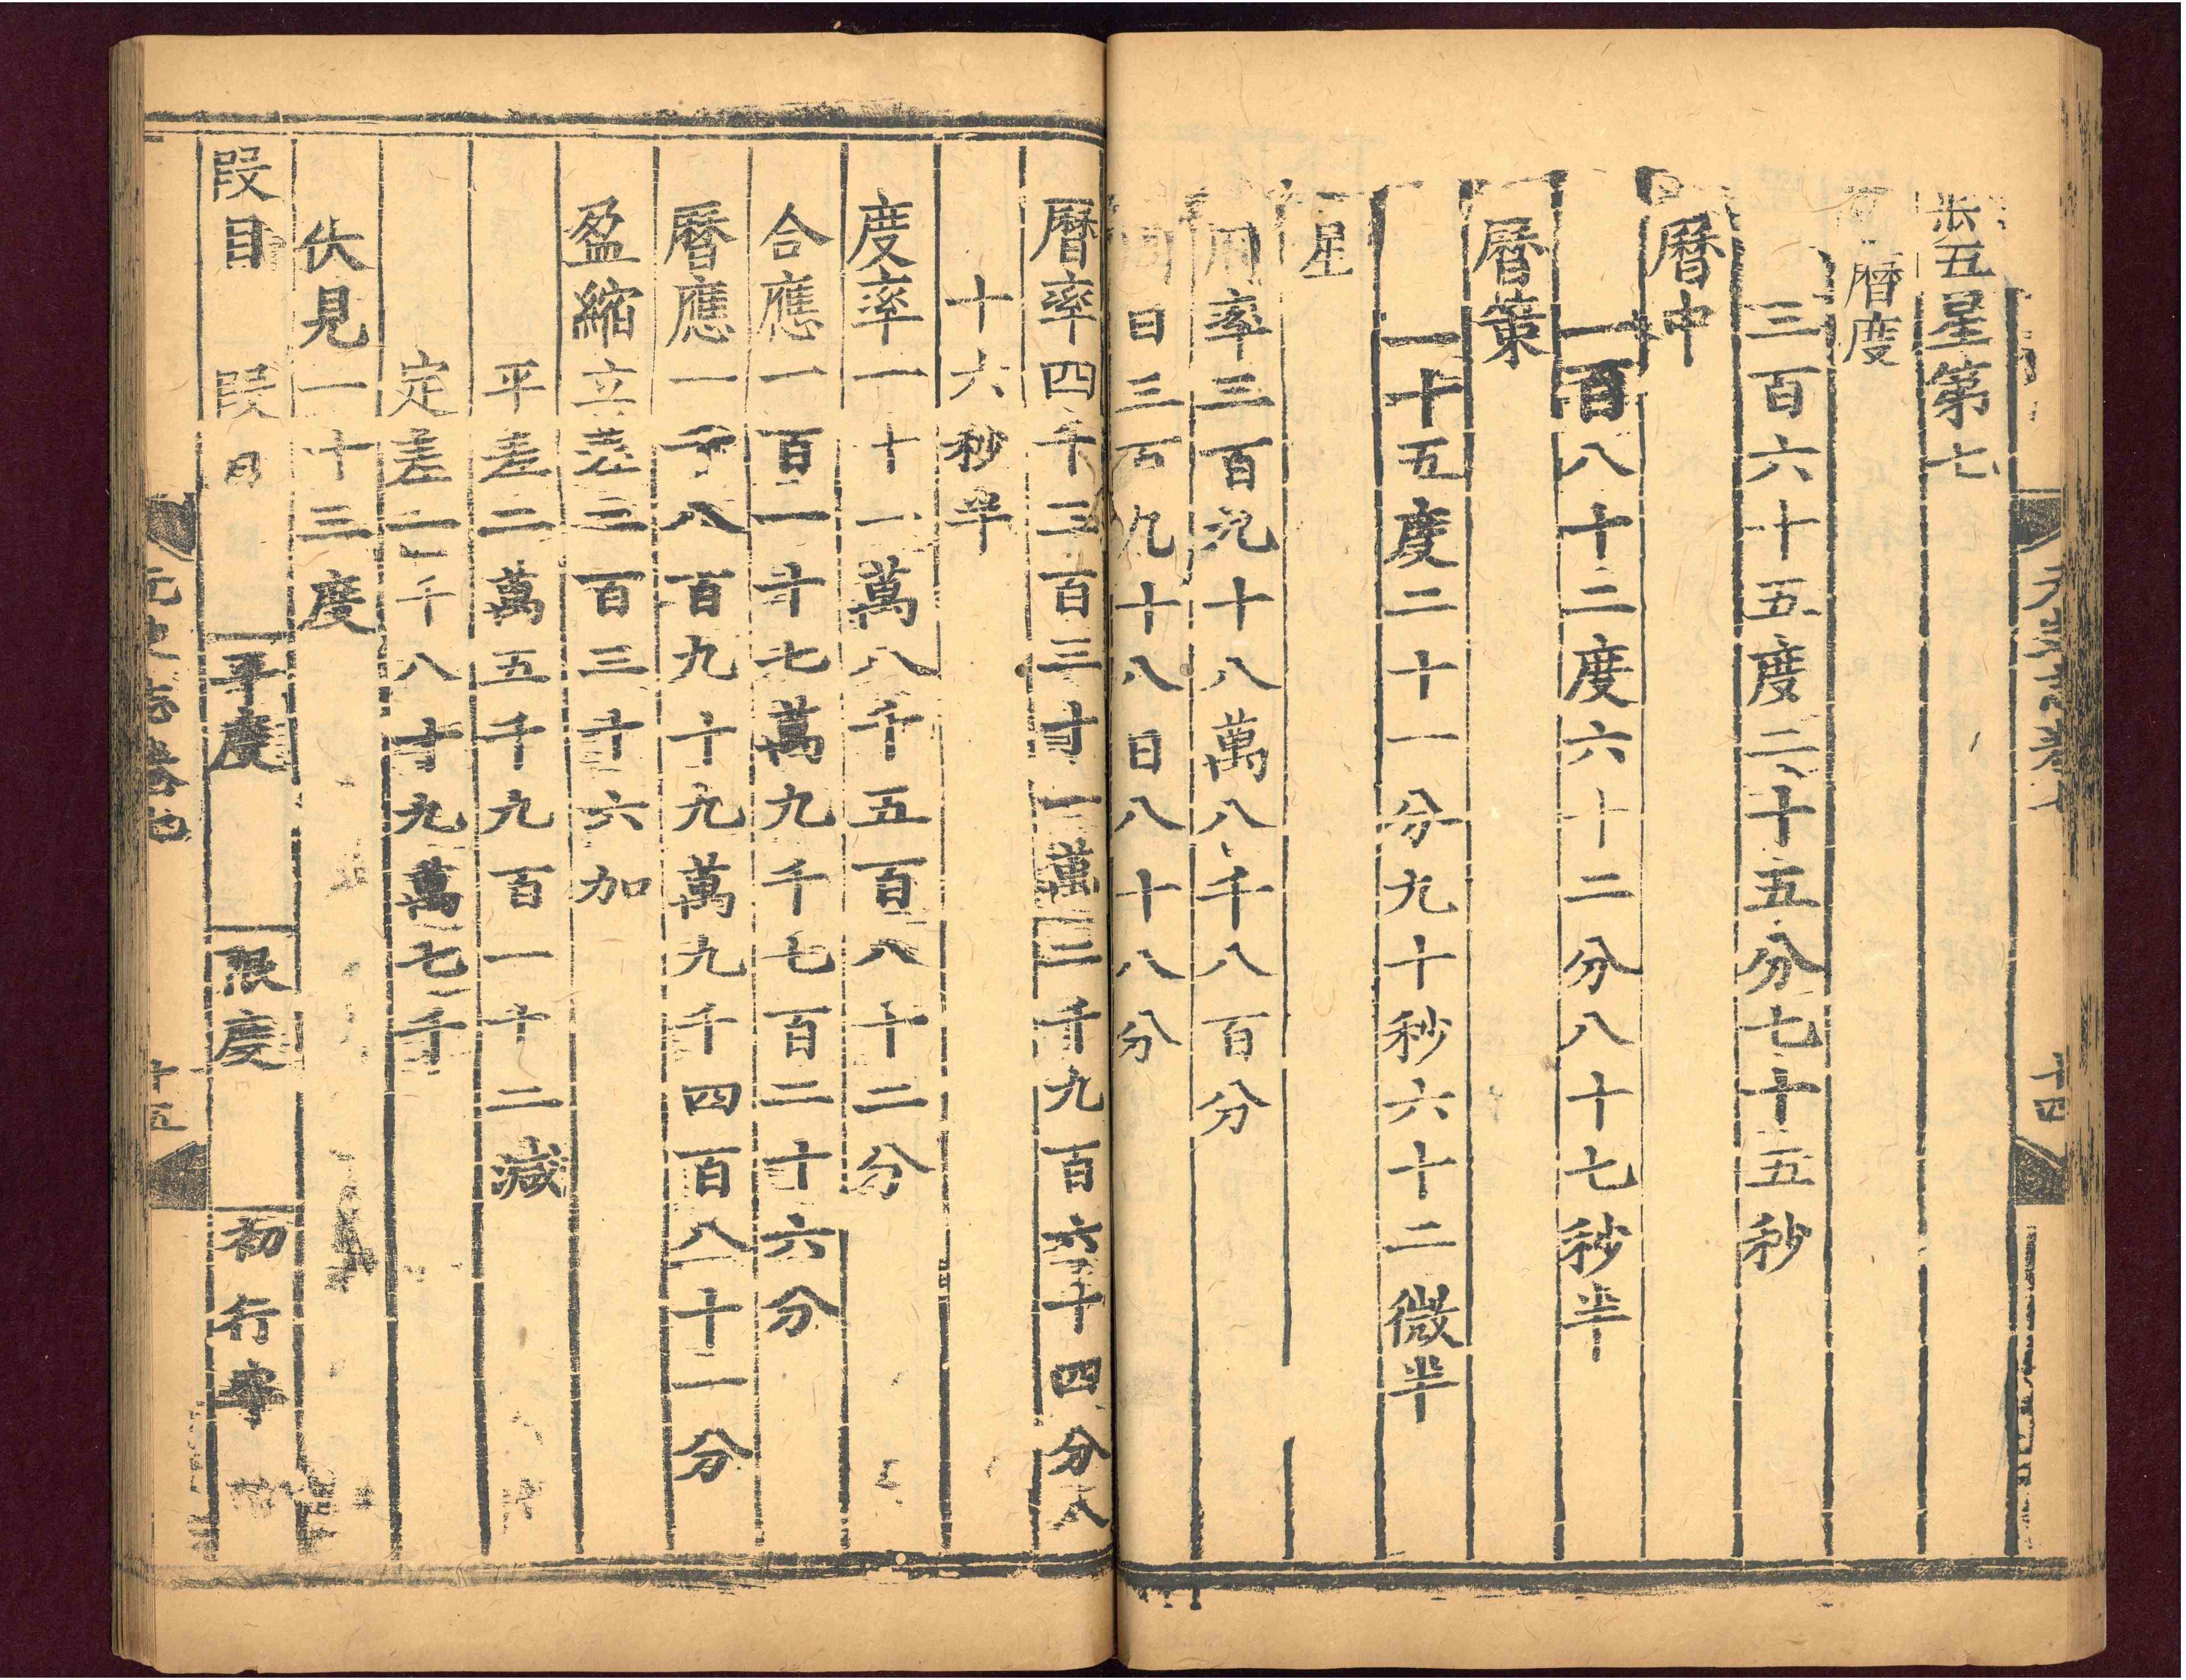 步五星第七
曆度
三百六十五度二十五分七十五秒
曆中
一百八十二度六十二分八十七秒半
曆策
一十五度二十一分九十秒六十二微半
星
周率三百九十八萬八千八百分
周日三百九十八日八十八分
曆率四千三百三十一萬二千九百六十四分八
十六秒半
度率一十一萬八千五百八十二分
合應一百一十七萬九千七百二十六分
曆應一千八百九十九萬九千四百八十一分
盈縮立差二百三十六加
平差二萬五千九百一十二減
定差一千八十九萬七千
伏見一十三度
段目 段日 平度 限度 初行率
十四